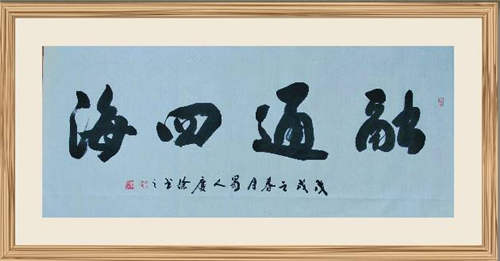 融通四海
戊戌之春月蜀人度徐书之